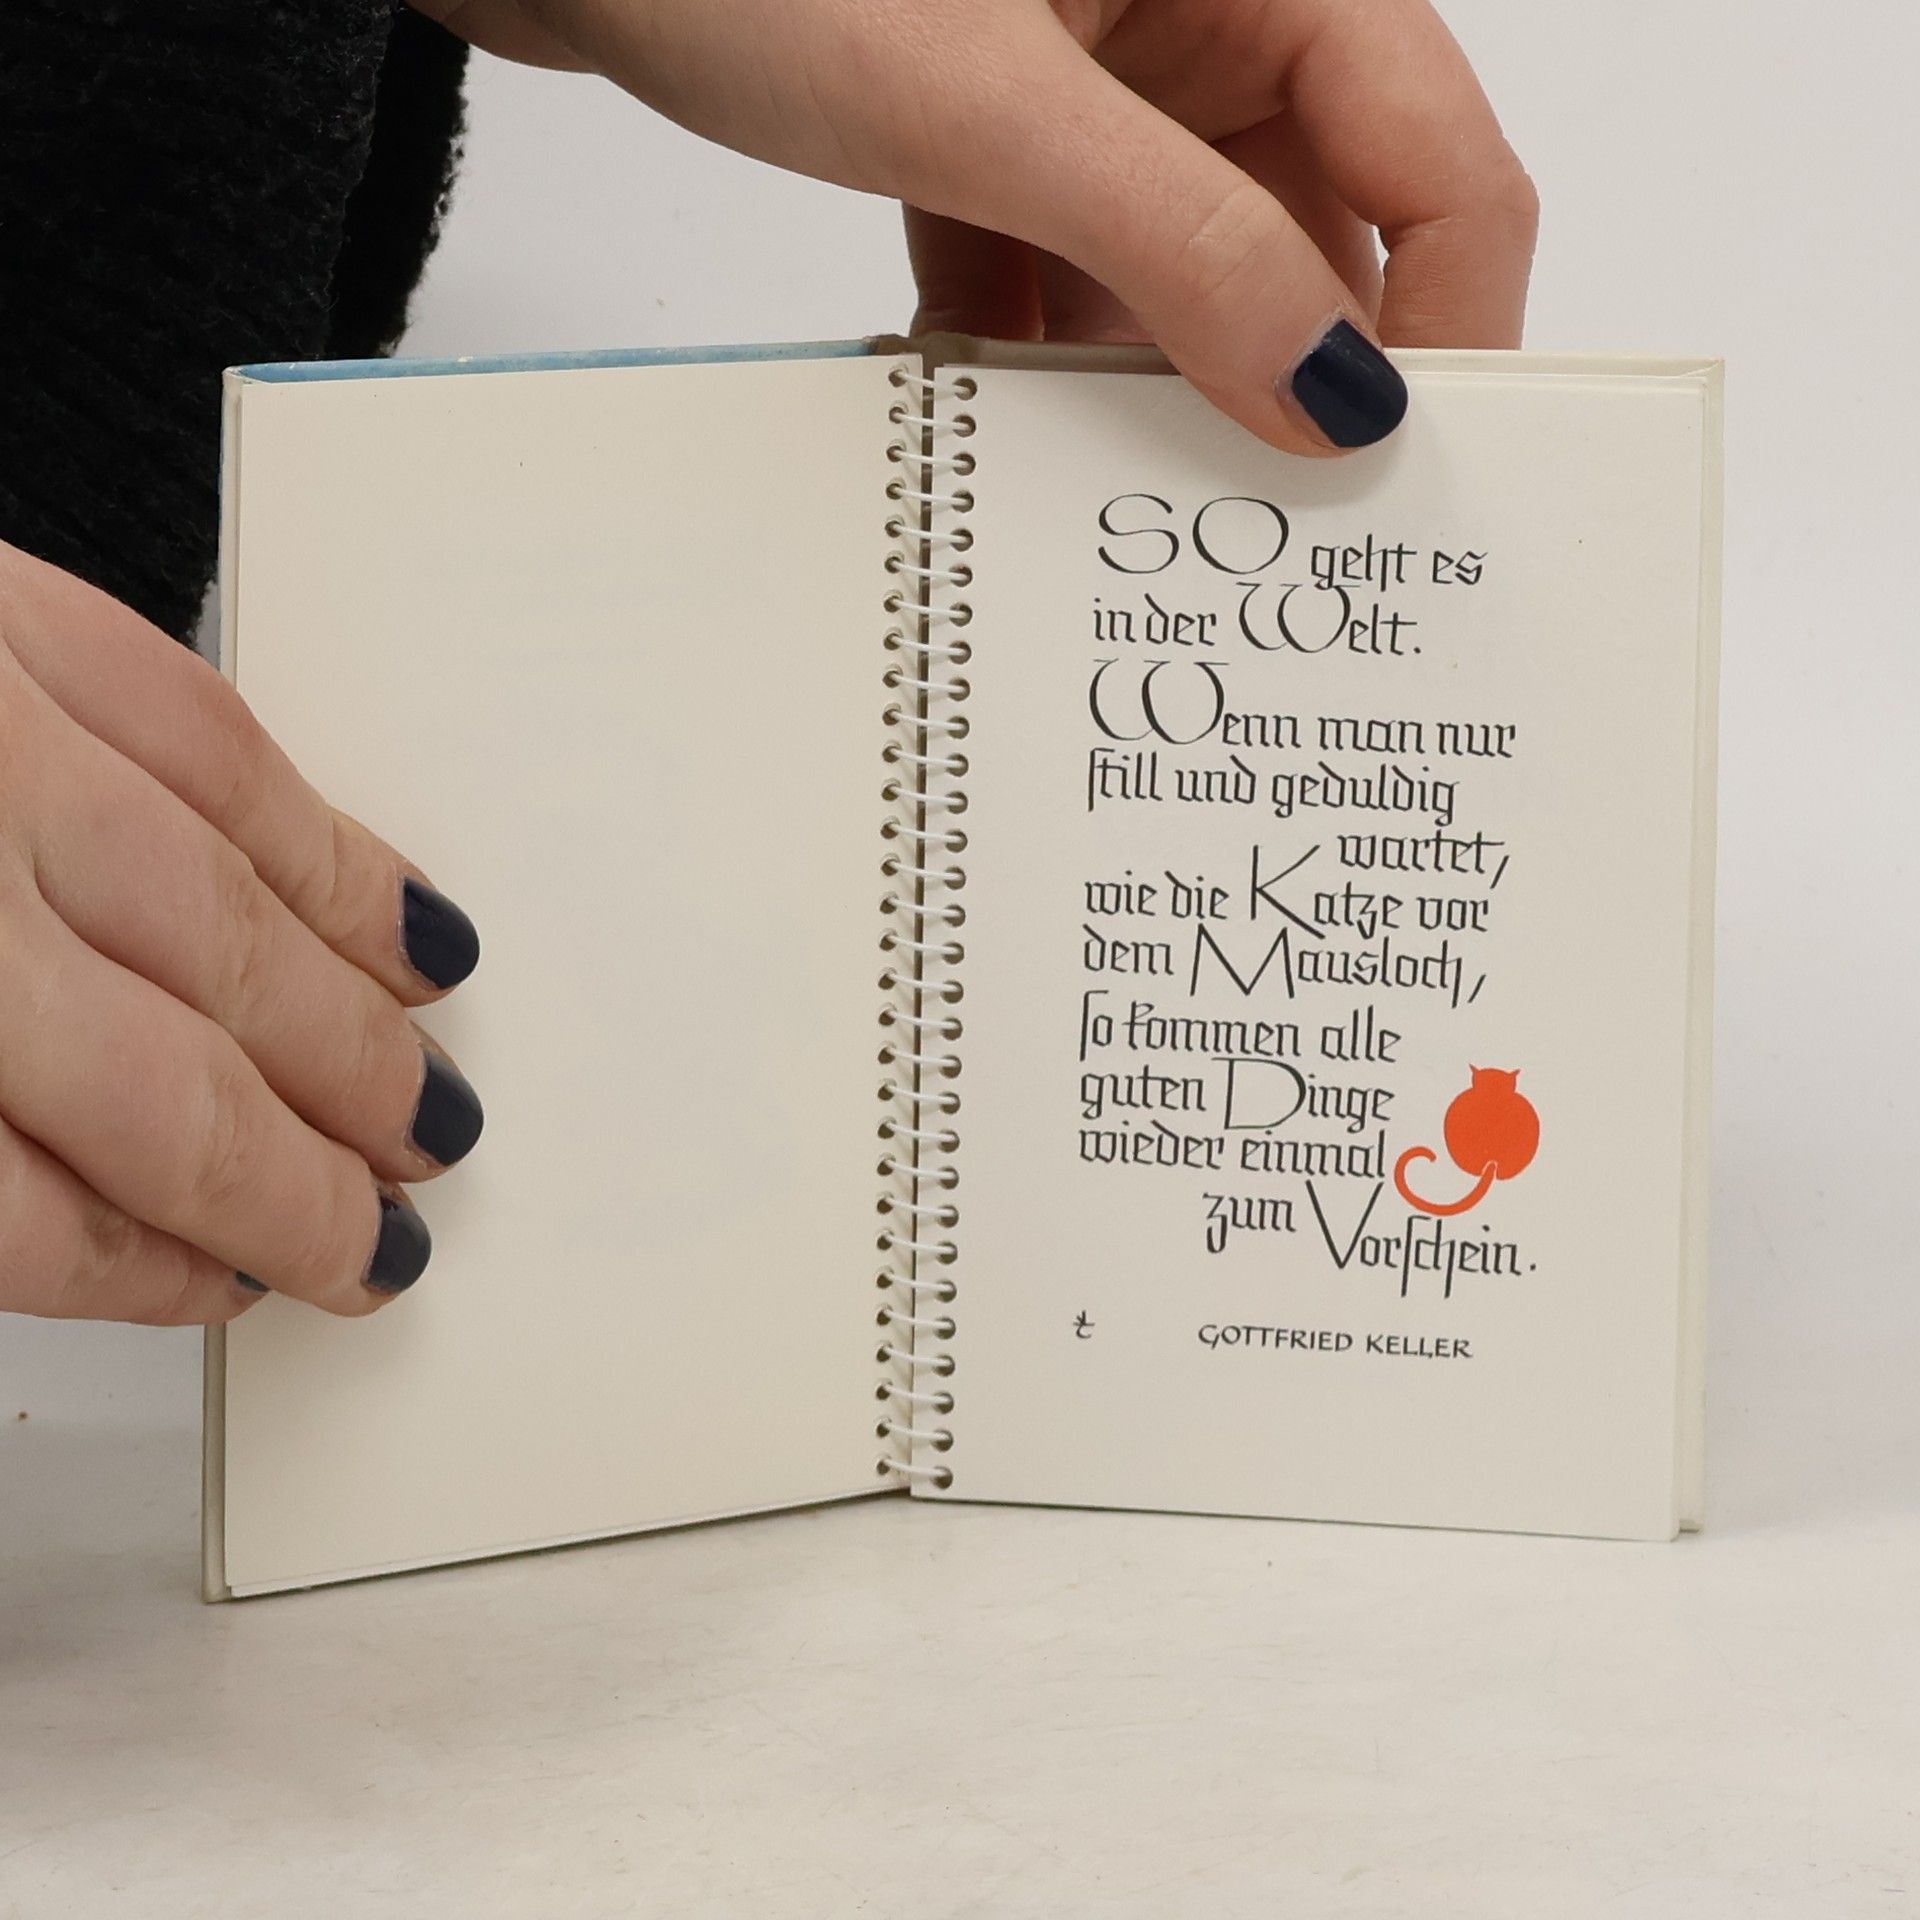 SO geht es
in der Welt.
Wenn man nur
still und geduldig
wartet,
wie die Katze vor
dem Mausloch,
so kommen alle
guten Dinge
wieder einmal
zum Vorschein.
t GOTTFRIED KELLER